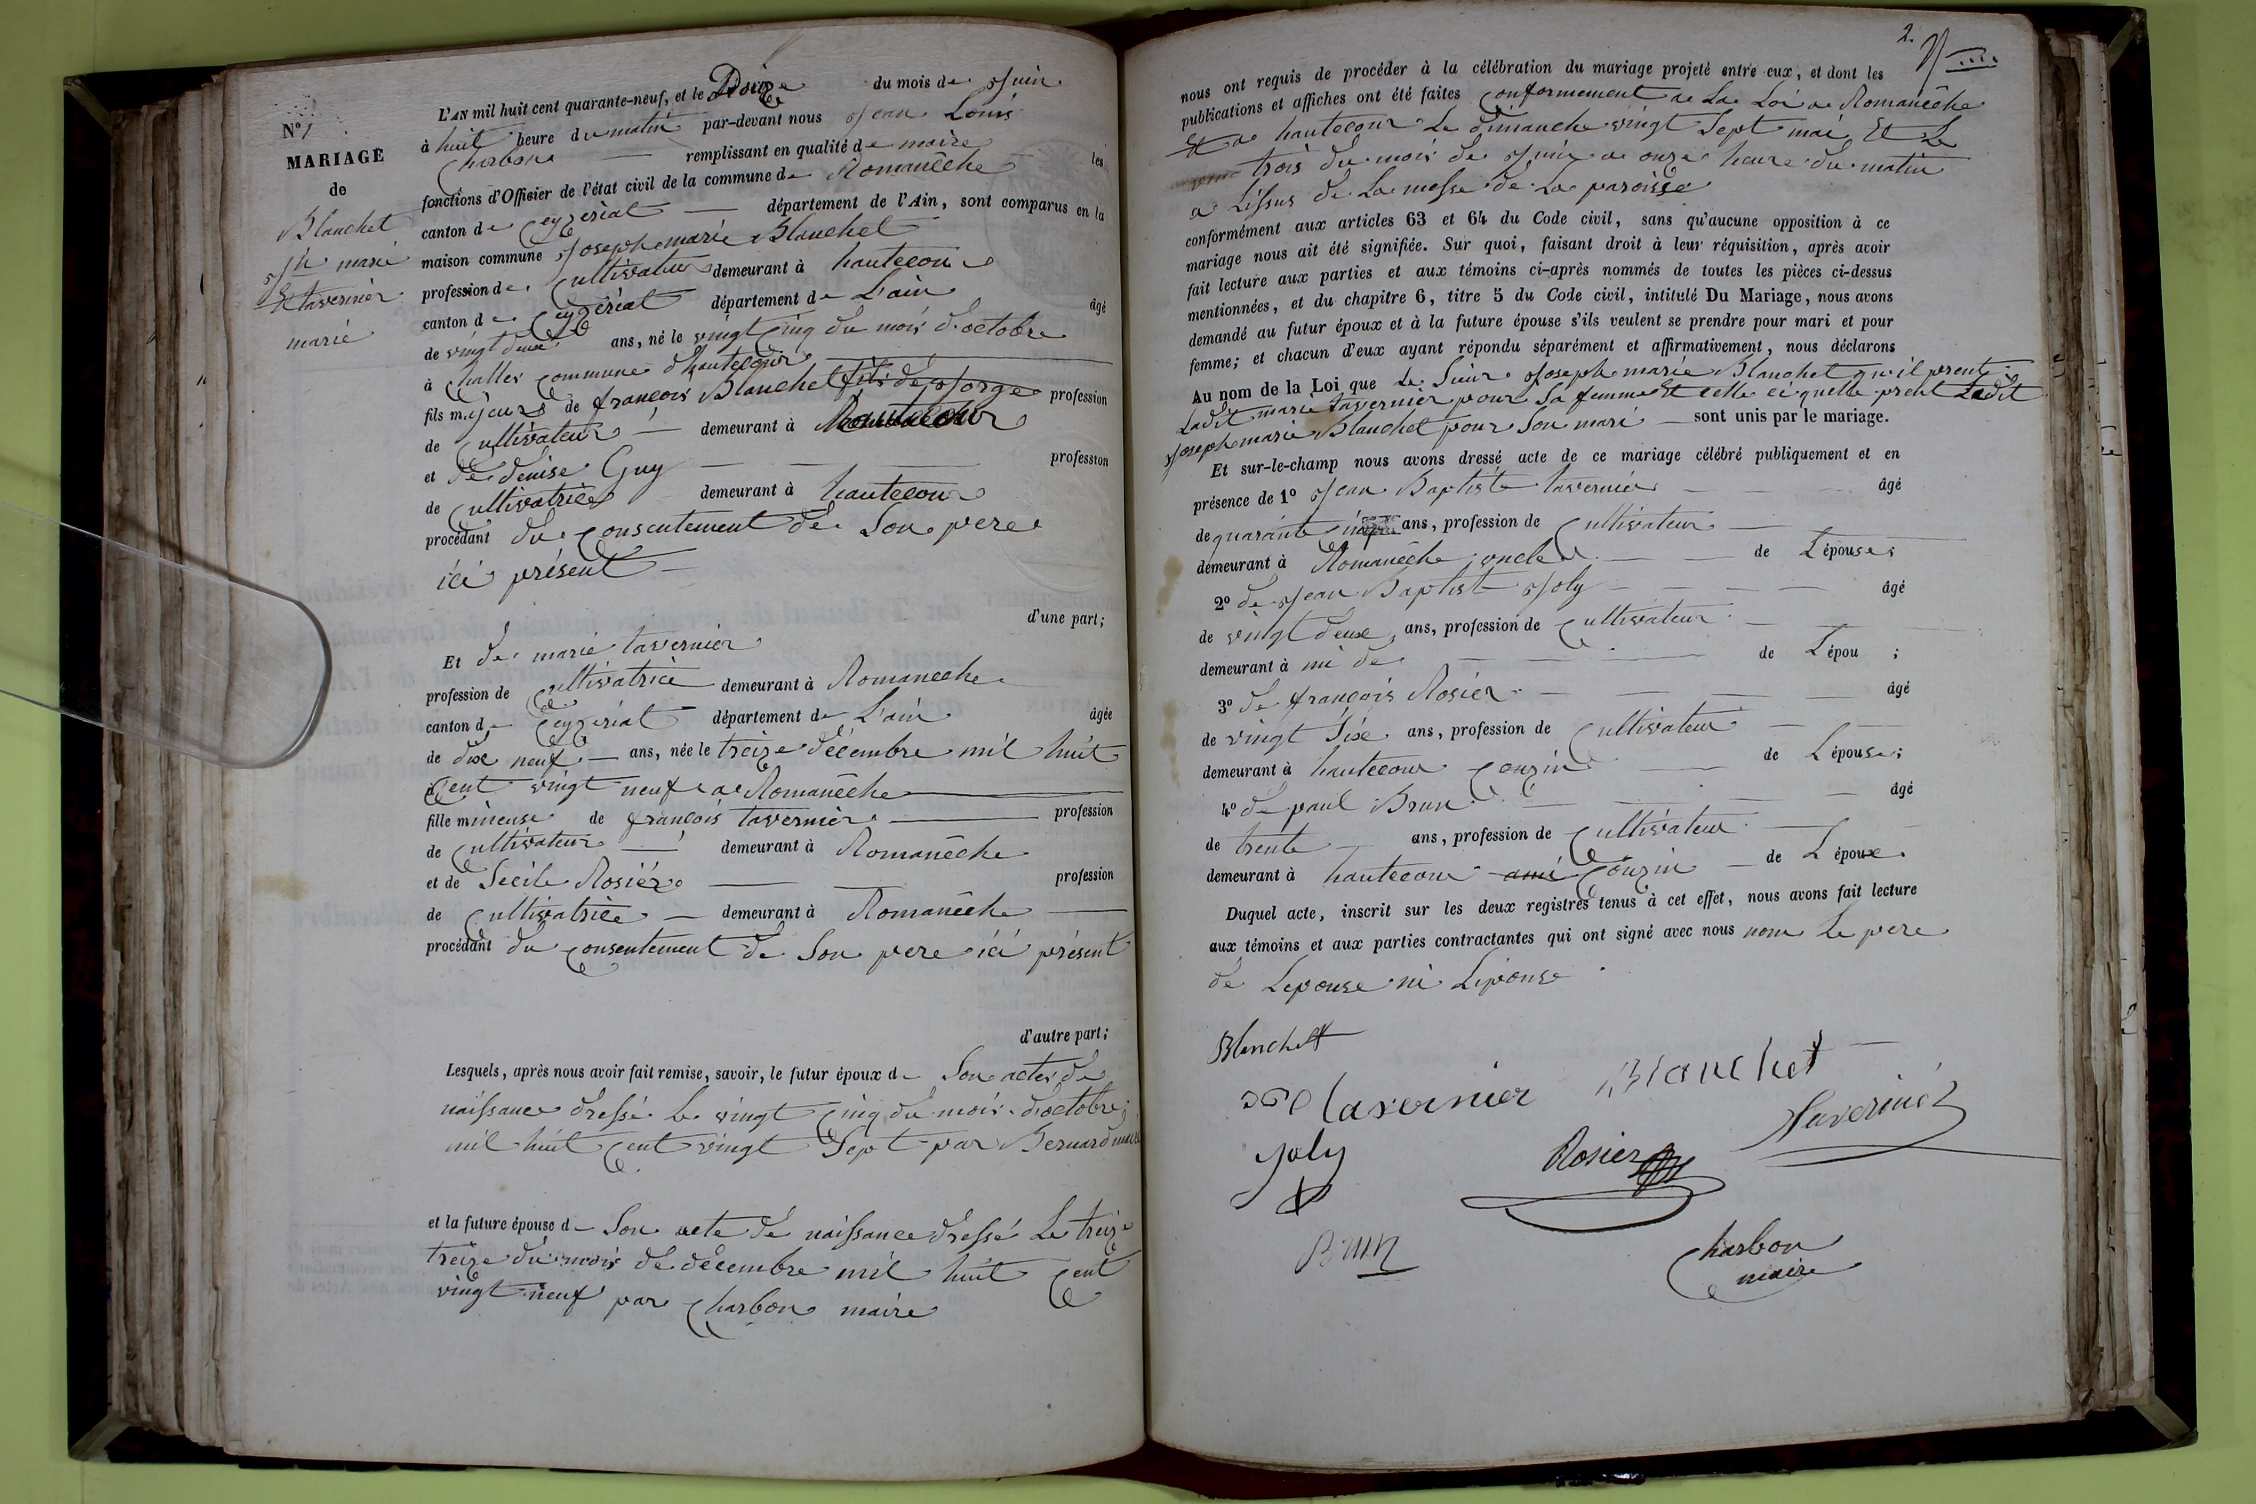 N° 1
MARIAGE
de
Blanchet
jh marie
Et tavernier
marie
L'AN mil huit cent quarante-neuf, et le Douze du mois de Juin
à huit heure du matin par-devant nous Jean Louis
Charbon remplissant en qualité de maire les
fonctions d'Officier de l'état civil de la commune de Romanêche
canton de Ceyzeriat département de l'Ain, sont comparus en la
maison commune Joseph marie Blanchet
profession de Cultivateur demeurant à hautecour
canton de Ceyzériat département de L'ain âgé
de vingt deux ans, né le vingt Cinq du mois d'octobre
à Challes Commune d'hautecour
fils majeur de françois Blanchet fils de Jorge profession
de Cultivateur demeurant à hautecour
et de denise Guy profession
de Cultivatrice demeurant à hautecour
procédant du Consentement de Son pere
ici présent
d'une part;
Et de marie tavernier
profession de Cultivatrice demeurant à Romaneche
canton de Ceyzeriat département de L'ain âgée
de dixe neuf ans, née le treize décembre mil huit
Cent vingt neuf a Romanêche
fille mineuse de françois tavernier profession
de Cultivateur demeurant à Romanêche
et de Sicile Rosier profession
de Cultivatrice demeurant à Romanêche
procédant du Consentement de Son pere ici présent
d'autre part;
Lesquels, après nous avoir fait remise, savoir, le futur époux de Son actes de
naissance dressé Le vingt Cinq du mois d'octobre
mil huit Cent vingt Sept par Bernard maire
et la future épouse de Son acte de naissance dressé Le treize
treize du mois de décembre mil huit Cent
vingt neuf par Charbon maire
2.
nous ont requis de procéder à la célébration du mariage projeté entre eux, et dont les
publications et affiches ont été faites Conformement a La Loi a Romanêche
Et a hautecour Le dimanche vingt Sept mai Et Le
trois du mois de Juin a onze heure du matin
a Lissus de La messe de La paroisse
conformément aux articles 63 et 64 du Code civil, sans qu'aucune opposition à ce
mariage nous ait été signifiée. Sur quoi, faisant droit à leur réquisition, après avoir
fait lecture aux parties et aux témoins ci-après nommés de toutes les pièces ci-dessus
mentionnées, et du chapitre 6, titre 5 du Code civil, intitulé Du Mariage, nous avons
demandé au futur époux et à la future épouse s'ils veulent se prendre pour mari et pour
femme; et chacun d'eux ayant répondu séparément et affirmativement, nous déclarons
Au nom de la Loi que Le Sieur Joseph marie Blanchet qu'il prente
Ladit marie tavernier pour Sa femme Et celle ci quelle prent Ledit
Joseph marie Blanchet pour Son mari sont unis par le mariage.
Et sur-le-champ nous avons dressé acte de ce mariage célébré publiquement et en
présence de 1° Jean Baptiste tavernier âgé
de quarante ans, profession de Cultivateur
demeurant à Romanêche oncle de L'épouse;
2° de Jean Baptist Joly âgé
de vingt deux ans, profession de Cultivateur
demeurant à mi de de L'épou ;
3° de françois Rosier âgé
de vingt Sixe ans, profession de Cultivateur
demeurant à hautecour Couzin de L'épouse;
4° de paul Brun âgé
de trente ans, profession de Cultivateur
demeurant à hautecour ami Couzin de L'époux.
Duquel acte, inscrit sur les deux registres tenus à cet effet, nous avons fait lecture
aux témoins et aux parties contractantes qui ont signé avec nous non Le pere
de Lepouse ni Lepouse
Blanchet
tavernier Blanchet
Joly Rosier Tavernier
Brun Charbon
maire